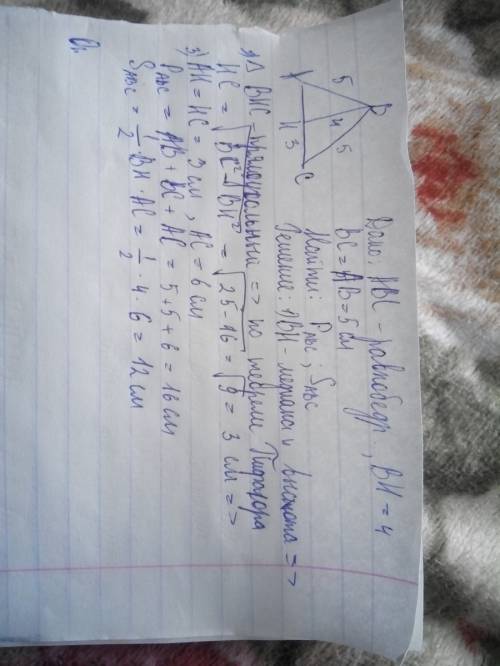 Дано: ABC - равнобедр., BH = 4
BC = AB = 5 см
Найти: P ABC ; S ABC
Решение: 1) BH - медиана и высота =>
B
5
4
5
H
3
C
2) Δ BHC прямоугольный => по теореме Пифагора
HC = √BC² - BH² = √25-16 = √9 = 3 см =>
3) AH = HC = 3 см, AC = 6 см
P ABC = AB + BC + AC = 5 + 5 + 6 = 16 см
S ABC = 1/2 · BH · AC = 1/2 · 4 · 6 = 12 см